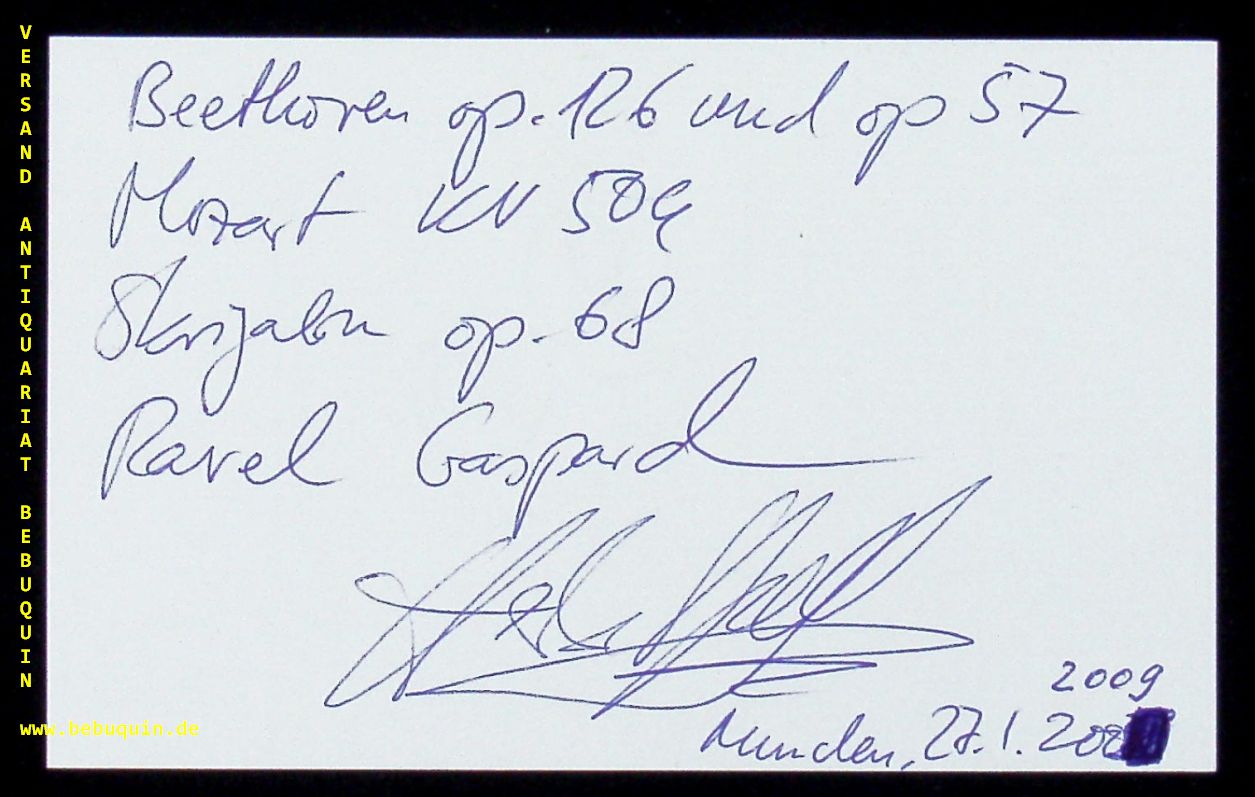 VERSAND ANTIQUARIAT BEBUQUIN
www.bebuquin.de
Beethoven op. 126 und op 57
Mozart KV 509
Skrjabin op. 68
Ravel Gaspard
2009
München, 27.1.200